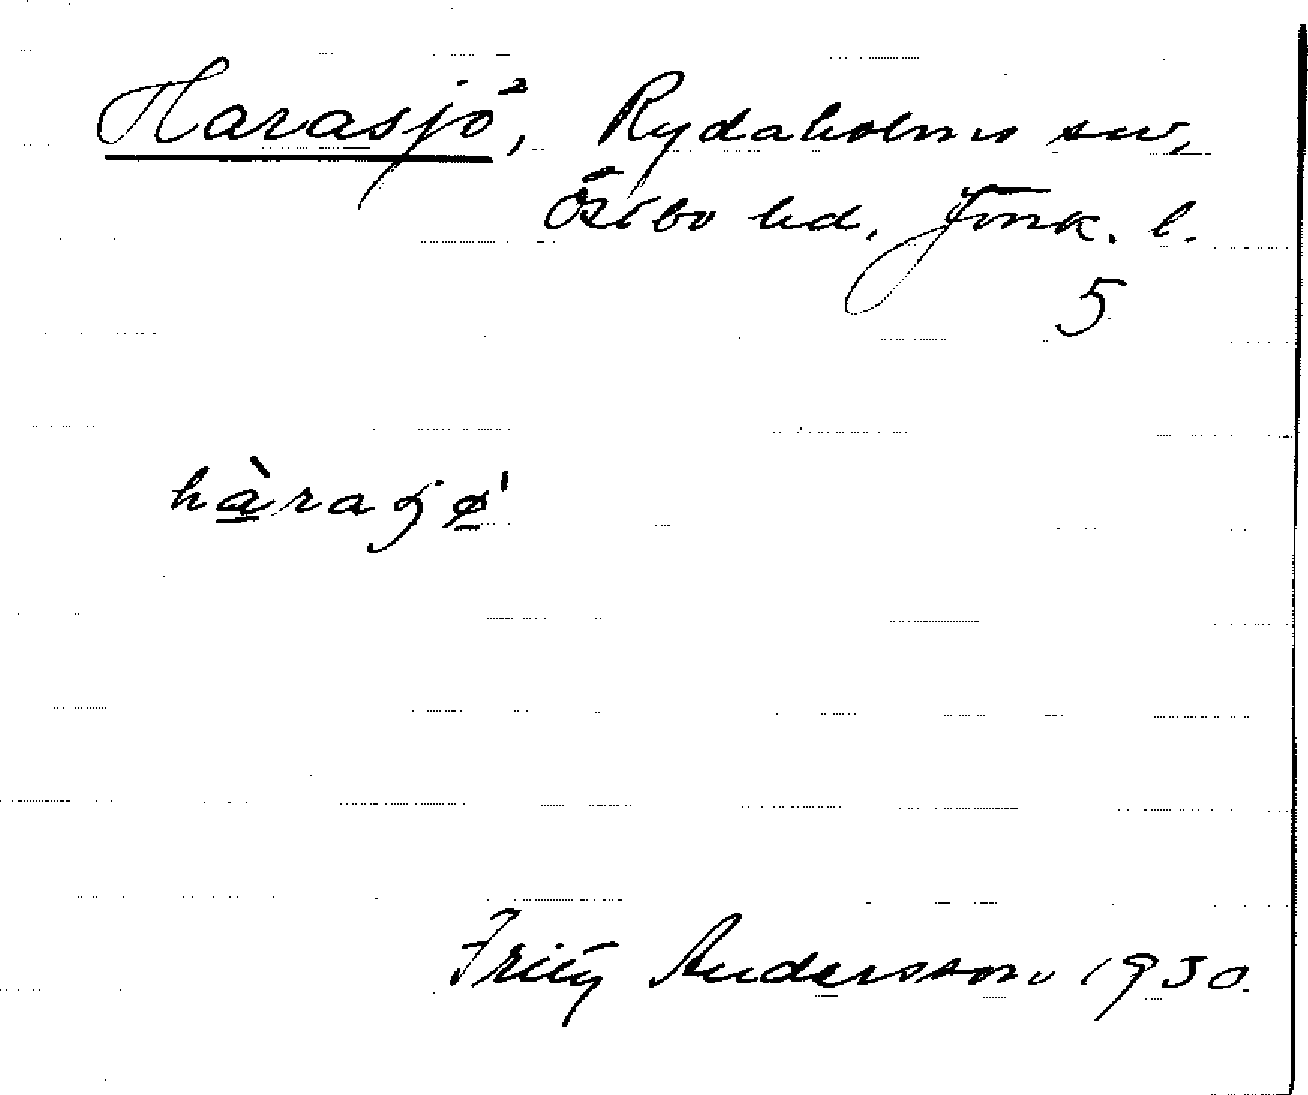 Harasjö, Rydaholms sn,
Östbo hd, Jönk. l.
5
hàraʂjø̱ˈ
Fritz Andersson 1930.